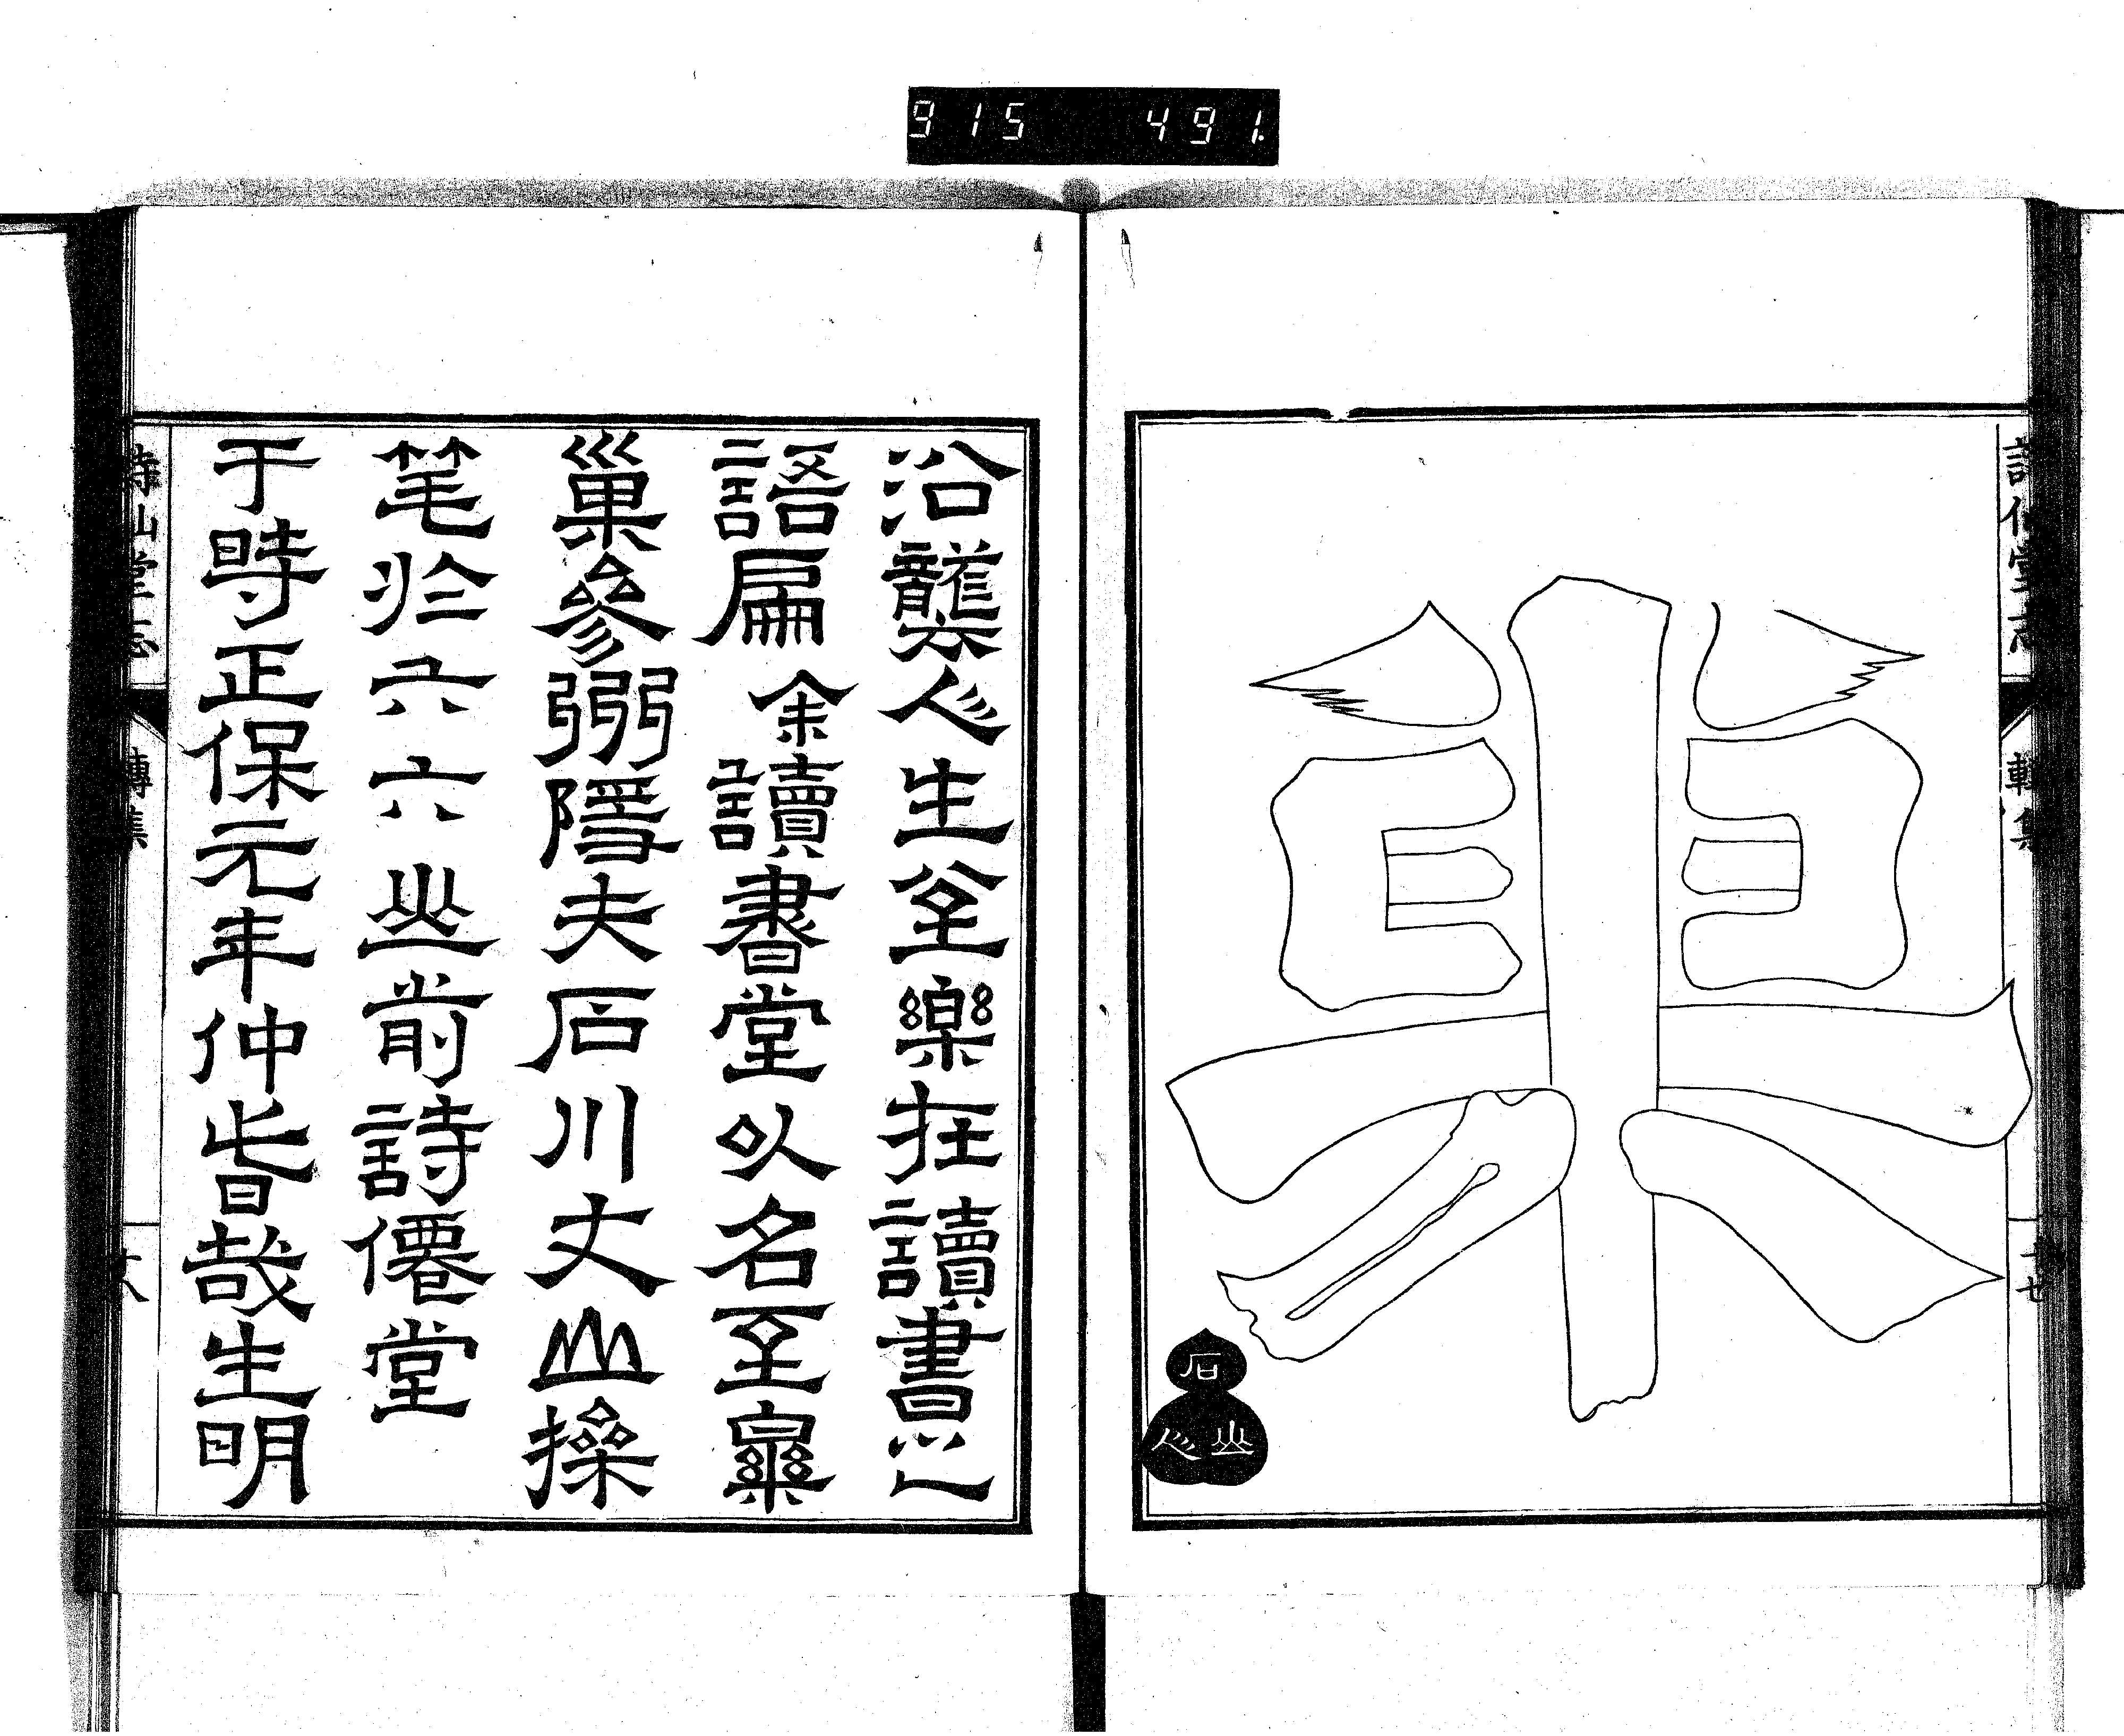 915 491.
詩仙堂志 轉集 十七
巢
石
山人
沿襲人生至樂在讀書之
語扁余讀書堂以名至樂
巢參弼隱夫石川丈山操
笔於六六山前詩僊堂
于時正保元年仲旾哉生明
詩仙堂志 轉集 十八